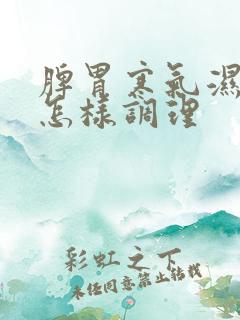 脾胃寒氣濕
怎樣調理
彩虹之下
未经同意禁止转载